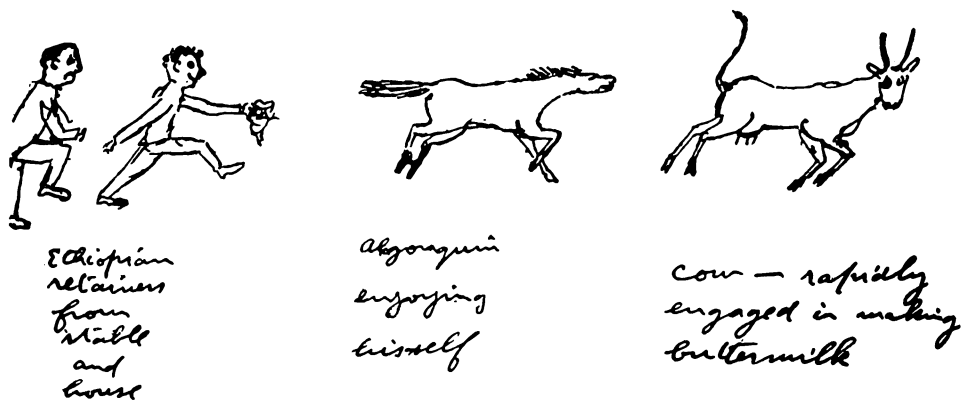 Ethiopian
retainers
from
stable
and
house
Algonquin
enjoying
hisself
cow — rapidly
engaged in making
buttermilk